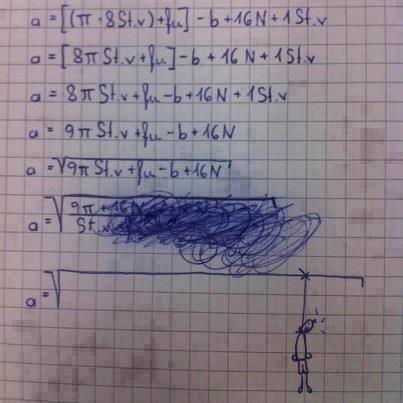 a = [(π · 8St.v) + fu] - b + 16N + 1St.v
a = [8π St.v + fu] - b + 16N + 1St.v
a = 8π St.v + fu - b + 16N + 1St.v
a = 9π St.v + fu - b + 16N
a = √9π St.v + fu - b + 16N
a = √9π + 16N
St.v
a = √